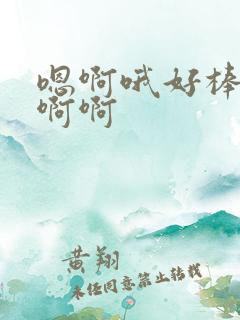 嗯啊哦好棒
啊啊
黄翔
未经同意禁止转载